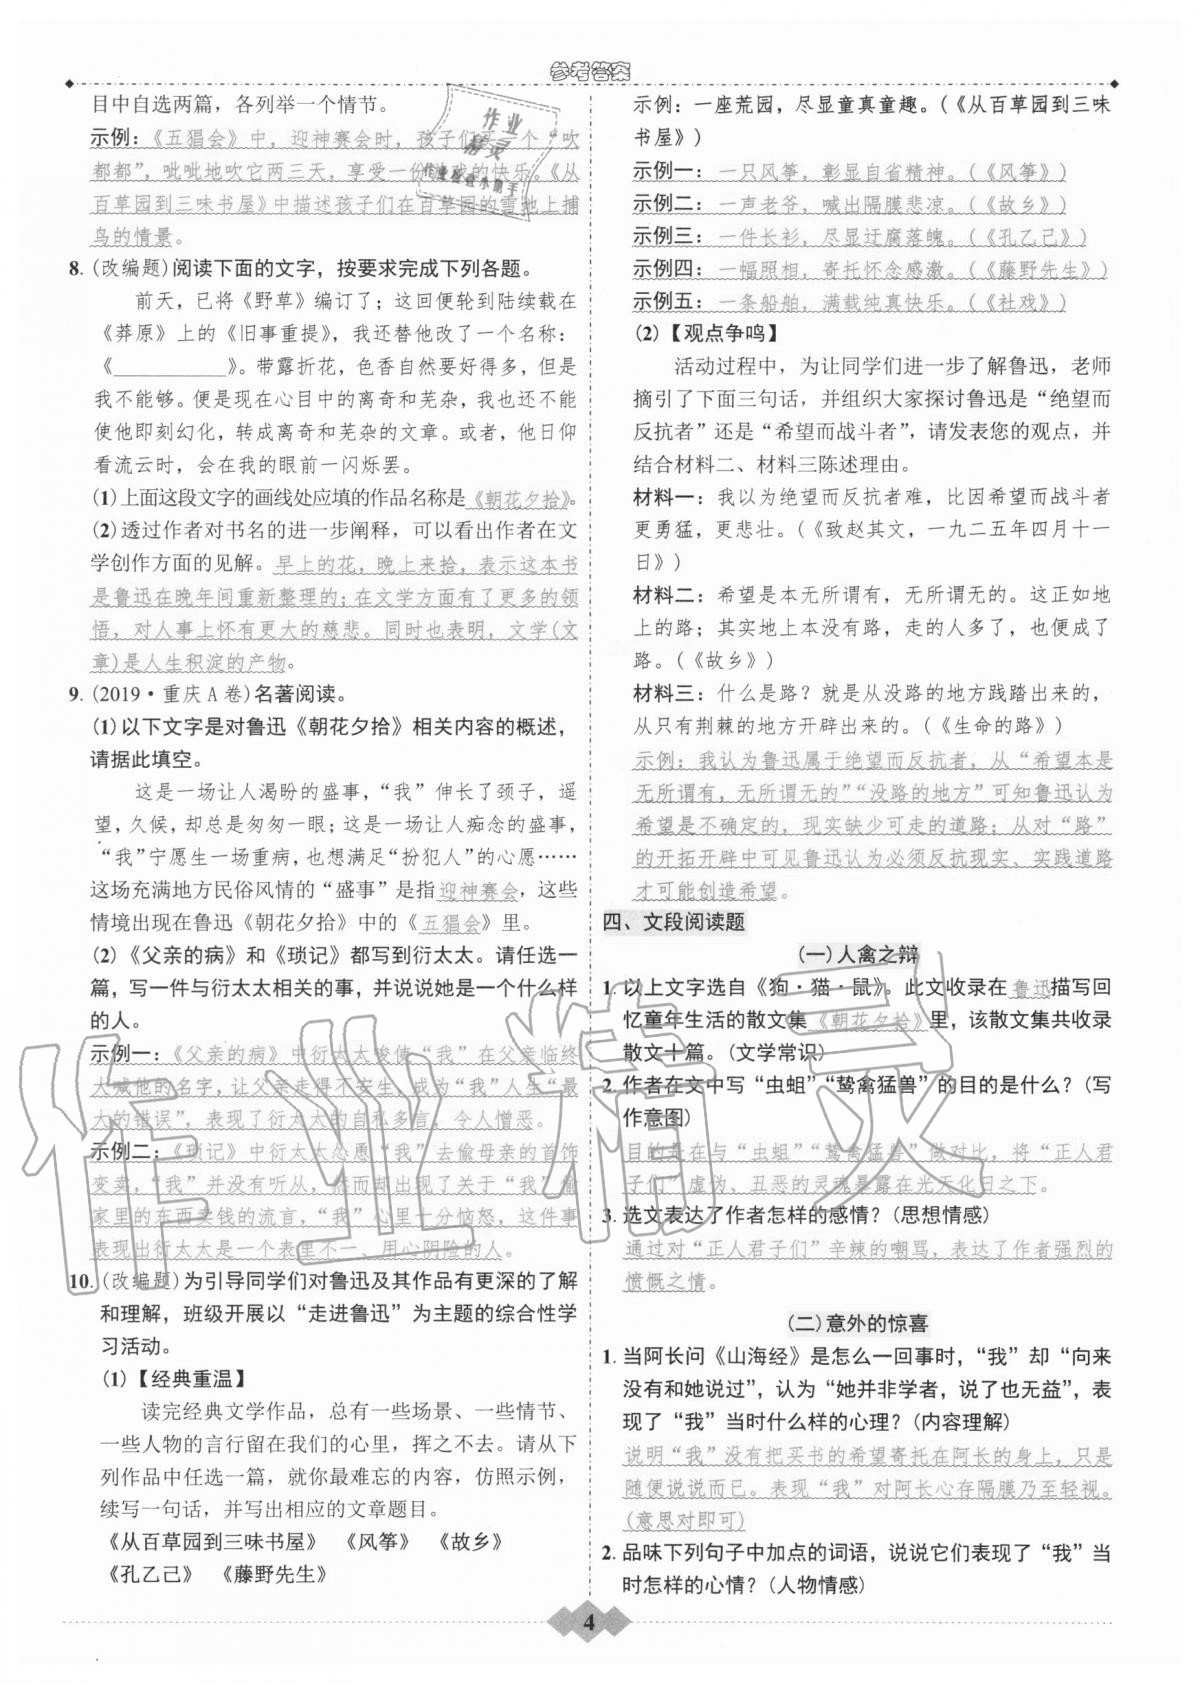 参考答案
目中自选两篇，各列举一个情节。
示例：《五猖会》中，迎神赛会时，孩子们买一个“吹
都都”，呲呲地吹它两三天，享受一份游戏的快乐。《从
百草园到三味书屋》中描述孩子们在百草园的雪地上捕
鸟的情景。
8. (改编题)阅读下面的文字，按要求完成下列各题。
前天，已将《野草》编订了；这回便轮到陆续载在
《莽原》上的《旧事重提》，我还替他改了一个名称：
《____________》。带露折花，色香自然要好得多，但是
我不能够。便是现在心目中的离奇和芜杂，我也还不能
使他即刻幻化，转成离奇和芜杂的文章。或者，他日仰
看流云时，会在我的眼前一闪烁罢。
(1)上面这段文字的画线处应填的作品名称是《朝花夕拾》。
(2)透过作者对书名的进一步阐释，可以看出作者在文
学创作方面的见解。早上的花，晚上来拾，表示这本书
是鲁迅在晚年间重新整理的；在文学方面有了更多的领
悟，对人事上怀有更大的慈悲。同时也表明，文学(文
章)是人生积淀的产物。
9. (2019·重庆A卷)名著阅读。
(1)以下文字是对鲁迅《朝花夕拾》相关内容的概述，
请据此填空。
这是一场让人渴盼的盛事，“我”伸长了颈子，遥
望，久候，却总是匆匆一眼；这是一场让人痴念的盛事，
“我”宁愿生一场重病，也想满足“扮犯人”的心愿……
这场充满地方民俗风情的“盛事”是指迎神赛会，这些
情境出现在鲁迅《朝花夕拾》中的《五猖会》里。
(2)《父亲的病》和《琐记》都写到衍太太。请任选一
篇，写一件与衍太太相关的事，并说说她是一个什么样
的人。
示例一：《父亲的病》中衍太太唆使“我”在父亲临终
大喊他的名字，让父亲走得不安生，成为“我”人生“最
大的错误”，表现了衍太太的自私多言，令人憎恶。
示例二：《琐记》中衍太太怂恿“我”去偷母亲的首饰
变卖，“我”并没有听从，然而却出现了关于“我”偷
家里的东西卖钱的流言，“我”心里十分恼怒，这件事
表现出衍太太是一个表里不一、用心阴险的人。
10. (改编题)为引导同学们对鲁迅及其作品有更深的了解
和理解，班级开展以“走进鲁迅”为主题的综合性学
习活动。
(1)【经典重温】
读完经典文学作品，总有一些场景、一些情节、
一些人物的言行留在我们的心里，挥之不去。请从下
列作品中任选一篇，就你最难忘的内容，仿照示例，
续写一句话，并写出相应的文章题目。
《从百草园到三味书屋》 《风筝》 《故乡》
《孔乙己》 《藤野先生》
示例：一座荒园，尽显童真童趣。(《从百草园到三味
书屋》)
示例一：一只风筝，彰显自省精神。(《风筝》)
示例二：一声老爷，喊出隔膜悲凉。(《故乡》)
示例三：一件长衫，尽显迂腐落魄。(《孔乙己》)
示例四：一幅照相，寄托怀念感激。(《藤野先生》)
示例五：一条船舶，满载纯真快乐。(《社戏》)
(2)【观点争鸣】
活动过程中，为让同学们进一步了解鲁迅，老师
摘引了下面三句话，并组织大家探讨鲁迅是“绝望而
反抗者”还是“希望而战斗者”，请发表您的观点，并
结合材料二、材料三陈述理由。
材料一：我以为绝望而反抗者难，比因希望而战斗者
更勇猛，更悲壮。(《致赵其文，一九二五年四月十一
日》)
材料二：希望是本无所谓有，无所谓无的。这正如地
上的路；其实地上本没有路，走的人多了，也便成了
路。(《故乡》)
材料三：什么是路？就是从没路的地方践踏出来的，
从只有荆棘的地方开辟出来的。(《生命的路》)
示例：我认为鲁迅属于绝望而反抗者，从“希望本是
无所谓有，无所谓无的”“没路的地方”可知鲁迅认为
希望是不确定的，现实缺少可走的道路；从对“路”
的开拓开辟中可见鲁迅认为必须反抗现实、实践道路
才可能创造希望。
四、文段阅读题
(一)人禽之辩
1. 以上文字选自《狗·猫·鼠》。此文收录在鲁迅描写回
忆童年生活的散文集《朝花夕拾》里，该散文集共收录
散文十篇。(文学常识)
2. 作者在文中写“虫蛆”“鸷禽猛兽”的目的是什么？(写
作意图)
目的是在与“虫蛆”“鸷禽猛兽”做对比，将“正人君
子们”虚伪、丑恶的灵魂暴露在光天化日之下。
3. 选文表达了作者怎样的感情？(思想情感)
通过对“正人君子们”辛辣的嘲骂，表达了作者强烈的
愤慨之情。
(二)意外的惊喜
1. 当阿长问《山海经》是怎么一回事时，“我”却“向来
没有和她说过”，认为“她并非学者，说了也无益”，表
现了“我”当时什么样的心理？(内容理解)
说明“我”没有把买书的希望寄托在阿长的身上，只是
随便说说而已。表现“我”对阿长心存隔膜乃至轻视。
(意思对即可)
2. 品味下列句子中加点的词语，说说它们表现了“我”当
时怎样的心情？(人物情感)
4
作业
精灵
作业检查小助手
作业精灵